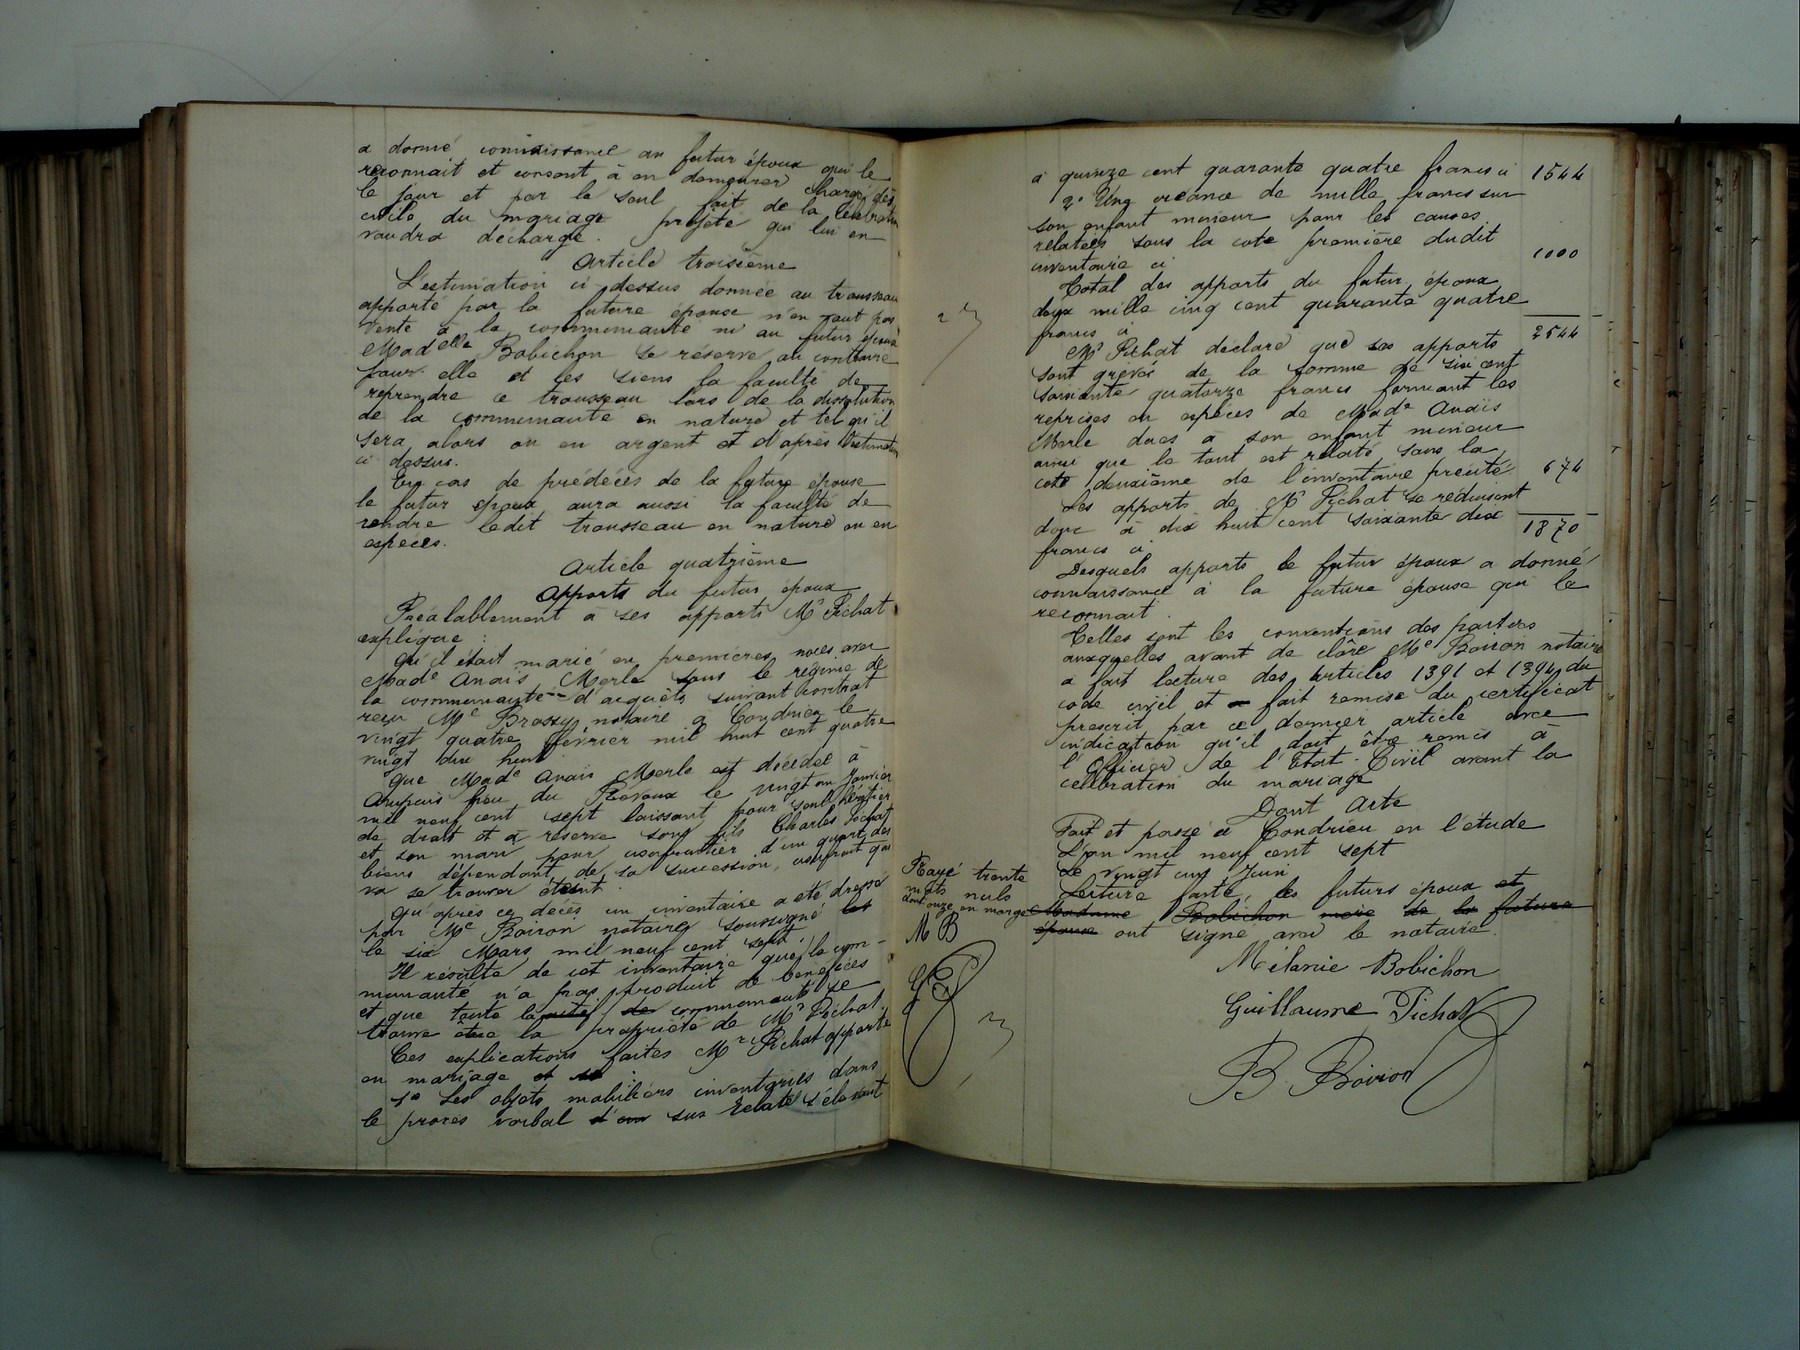 a donné connaissance au futur époux qui le
reconnait et consent à en demeurer chargé dès
le jour et par le seul fait de la célébration
civile du mariage projeté qui lui en
vaudra décharge.
Article troisième
L'estimation ci dessus donnée au trousseau
apporté par la future épouse n'en vaut pas
vente à la communauté ni au futur époux
Madelle Bobichon se réserve au contraire
pour elle et les siens la faculté de
reprendre ce trousseau lors de la dissolution
de la communauté en nature et tel qu'il
sera alors ou en argent et d'après l'estimation
ci dessus.
En cas de prédécès de la future épouse
le futur époux aura aussi la faculté de
rendre ledit trousseau en nature ou en
espèces.
Article quatrième
Apports du futur époux
Préalablement à ses apports Mr Pichat
explique :
Qu'il était marié en premières noces avec
Made Anaïs Merle sous le régime de
la communauté d'acquêts suivant contrat
reçu Me Brossy notaire à Condrieu le
vingt quatre février mil huit cent quatre
vingt dix huit
Que Made Anaïs Merle est décédée à
Ampuis lieu du Rozoux le vingt un Janvier
mil neuf cent sept laissant pour seul héritier
de droit et à réserve son fils Charles Pichat
et son mari pour usufruitier d'un quart des
biens dépendant de sa succession, usufruit qui
va se trouver éteint.
Qu'après ce décès un inventaire a été dressé
par Me Boiron notaire soussigné les
le six Mars mil neuf cent sept
Il résulte de cet inventaire que la com-
munauté n'a pas produit de bénéfices
et que toute la de communauté se
trouve être la propriété de Mr Pichat.
Ces explications faites Mr Pichat apporte
en mariage et :
1° Les objets mobiliers inventoriés dans
le procès verbal d'en sus relaté s'élevant
à quinze cent quarante quatre francs ci 1544
2° Une créance de mille francs sur
son enfant mineur pour les causes
relatées sous la cote première dudit
inventaire ci 1000
Total des apports du futur époux
deux mille cinq cent quarante quatre
francs ci 2544
Mr Pichat déclare que ses apports
sont grevés de la somme de six cent
soixante quatorze francs formant les
reprises en espèces de Made Anaïs
Merle dues à son enfant mineur
ainsi que le tout est relaté sous la
cote deuxième de l'inventaire précité 674
Les apports de Mr Pichat se réduisent
donc à dix huit cent soixante dix
francs ci 1870
Desquels apports le futur époux a donné
connaissance à la future épouse qui le
reconnait.
Telles sont les conventions des parties
auxquelles avant de clore Me Boiron notaire
a fait lecture des articles 1391 et 1394 du
code civil et a fait remise du certificat
prescrit par ce dernier article avec
indication qu'il doit être remis à
l'Officier de l'Etat Civil avant la
célébration du mariage
Dont Acte
Fait et passé à Condrieu en l'étude
L'an mil neuf cent sept
Le vingt cinq Juin
Lecture faite, les futurs époux et
Madame Bobichon mère de la future
épouse ont signé avec le notaire.
Rayé trente
mots nuls
dont onze en marge
M B
Mélanie Bobichon
Guillaume Pichat
B. Boiron